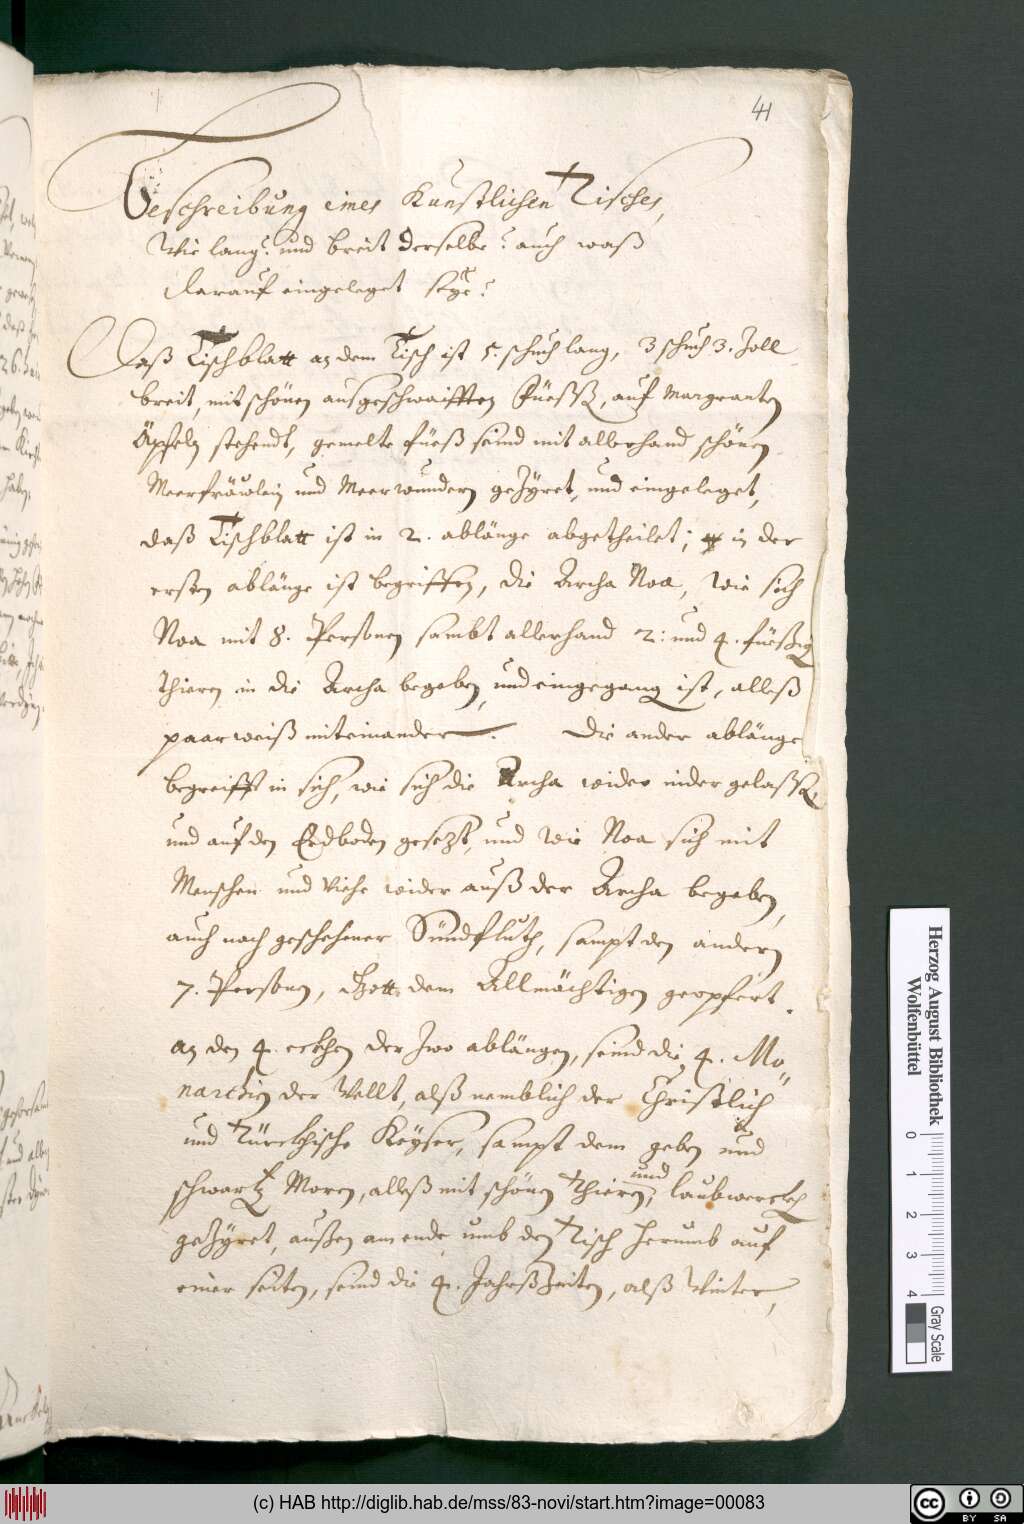 41
Beschreibung eines Kunstlichen Tisches,
Wie lang? und breit derselbe? auch waß
darauf eingeleget seye?
Daß Tischblatt an dem Tisch ist 5. schuch lang, 3 schuch 3. Zoll
breit, mit schönen außgeschwaifften Füeßß, auf Margranten
Äpfeln stehendt, gemelte füeß seind mit allerhand schönen
Meerfräwlein und Meerwundern geZyret, und eingeleget,
daß Tischblatt ist in 2. ablänge abgetheilet; in der
ersten ablänge ist begriffen, die Archa Noa, wie sich
Noa mit 8. Personen sambt allerhand 2: und 4. füeßig
thieren in die Archa begeben, und eingegang ist, alleß
paarweiß miteinander. Die ander ablänge
begreifft in sich, wie sich die Archa wider nider gelaßß
und auf den Erdboden gesetzt, und wie Noa sich mit
Menschen und Viehe wider auß der Archa begeben,
auch nach geschehener Sündfluth, sampt den andern
7. Personen, Gott dem Allmächtigen geopfert.
an den 4. eckhen der Zwo ablängen, seind die 4. Mo„
narchien der Wellt, alß nemblich der Christlich
und Türckhische Keyser, sampt dem geben und
schwartz Moren, alleß mit schönen Thieren, und laubwerckh
geZyret, außen am ende umb den Tisch herumb auf
einer seiten, seind die 4. JahrßZeiten, alß Winter,
Herzog August Bibliothek
Wolfenbüttel
0 1 2 3 4
Gray Scale
(c) HAB http://diglib.hab.de/mss/83-novi/start.htm?image=00083
cc BY SA